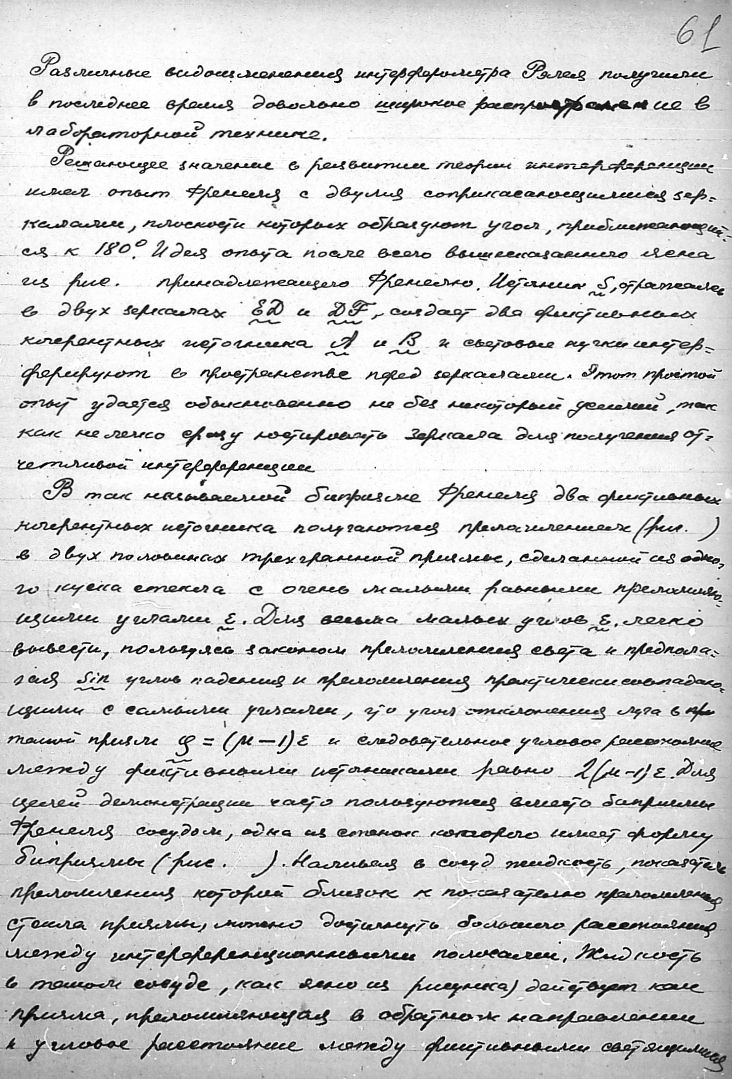 61
Различные видоизменения интерферометра Рэлея получили
в последнее время довольно широкое распространение в
лабораторной технике.
Решающее значение в развитии теории интерференции
имел опыт Френеля с двумя соприкасающимися зер-
калами, плоскости которых образуют угол, приближающий-
ся к 180°. Идея опыта после всего вышесказанного ясна
из рис. принадлежащего Френелю. Источник S, отражаясь
в двух зеркалах ED и DF, создает два фиктивных
когерентных источника A и B и световые пучки интер-
ферируют в пространстве перед зеркалами. Этот простой
опыт удается обыкновенно не без некоторый усилий, так
как нелегко сразу юстировать зеркала для получения от-
четливой интерференции
В так называемой бипризме Френеля два фиктивных
когерентных источника получаются преломлением (рис. )
в двух половинах трехгранной призмы, сделанной из одно-
го куска стекла с очень малыми равными преломляю-
щими углами ε. Для весьма малых углов ε легко
вывести, пользуясь законом преломления света и предпола-
гая Sin углов падения и преломления практически совпадаю-
щими с самыми углами, что угол отклонения луча в
такой призме φ = (μ – 1) ε и следовательное угловое расстояние
между фиктивными источниками равно 2(μ-1) ε. Для
целей демонстрации часто пользуются вместо бипризмы
Френеля сосудом, одна из стенок которого имеет форму
бипризмы (рис. ). Наливая в сосуд жидкость, показатель
преломления которой близок к показателю преломления
стекла призмы, можно достигнуть большого расстояния
между интерференционными полосами. Жидкость
в таком сосуде, как ясно из рисунка) действует как
призма, преломляющая в обратном направлении
и угловое расстояние между фиктивными светящимися